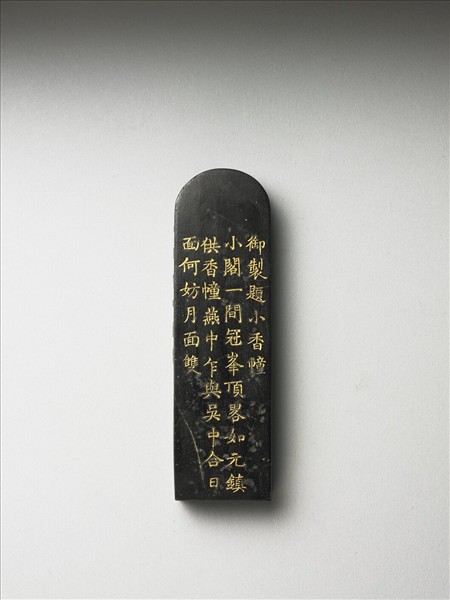 御製題小香幢
小閣一間冠峯頂畧如元鎮
供香幢燕中乍與吳中合日
面何妨月面雙